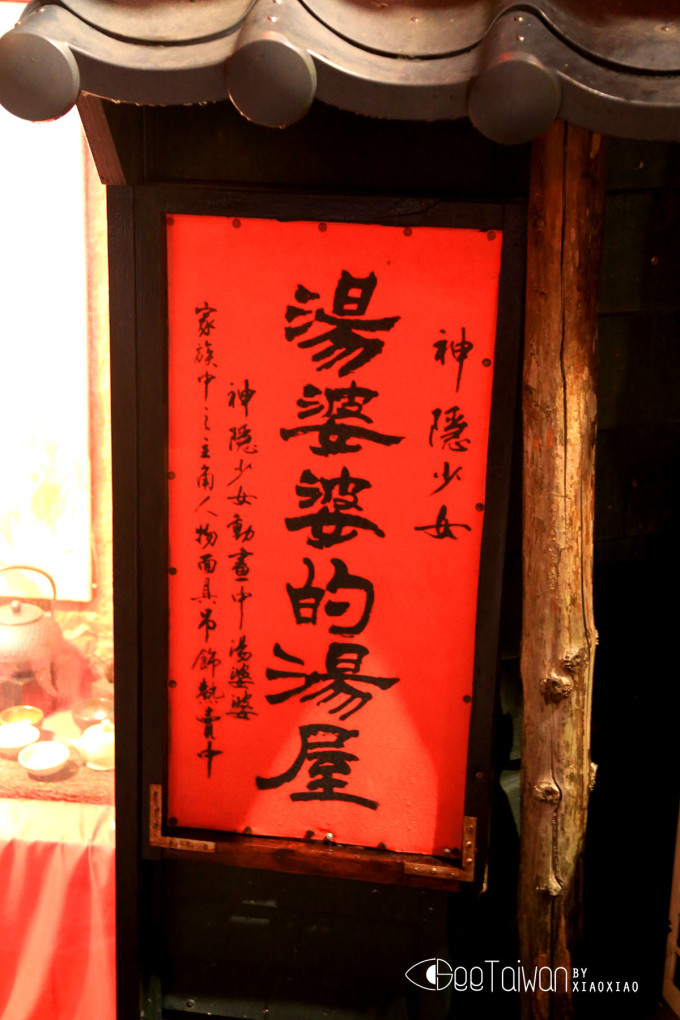 神隱少女
湯婆婆的湯屋
神隱少女動畫中湯婆婆
家族中之主角人物面具吊飾熱賣中
SeeTaiwan BY XIAOXIAO